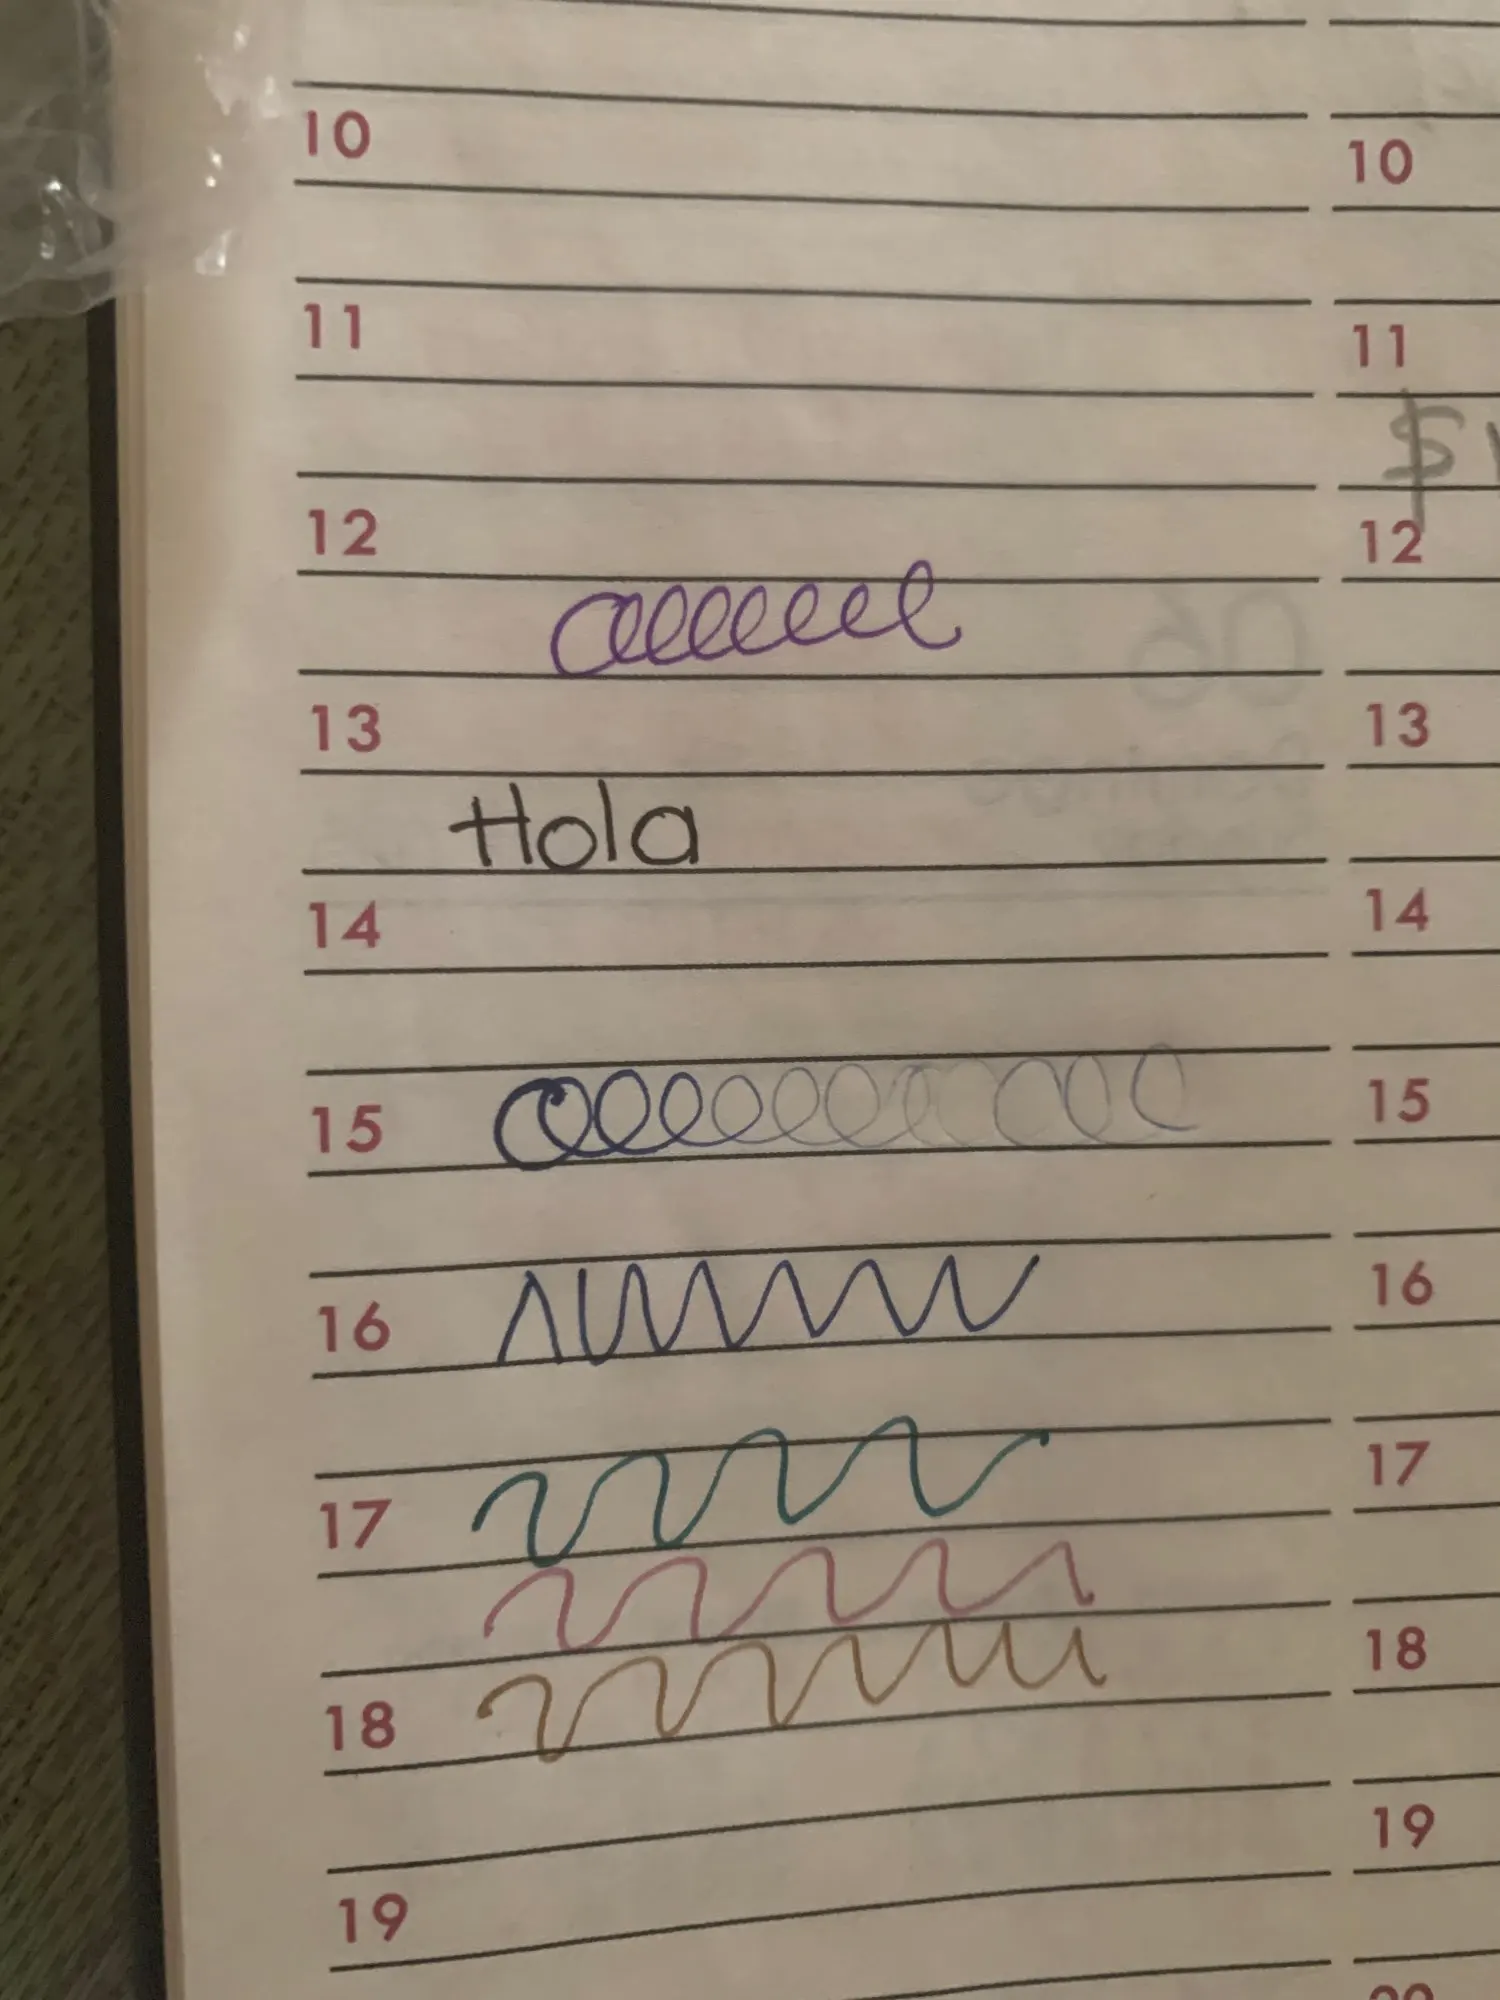 10 10
11 11
$
12 12
13 13
Hola
14 14
15 15
16 16
17 17
18 18
19 19